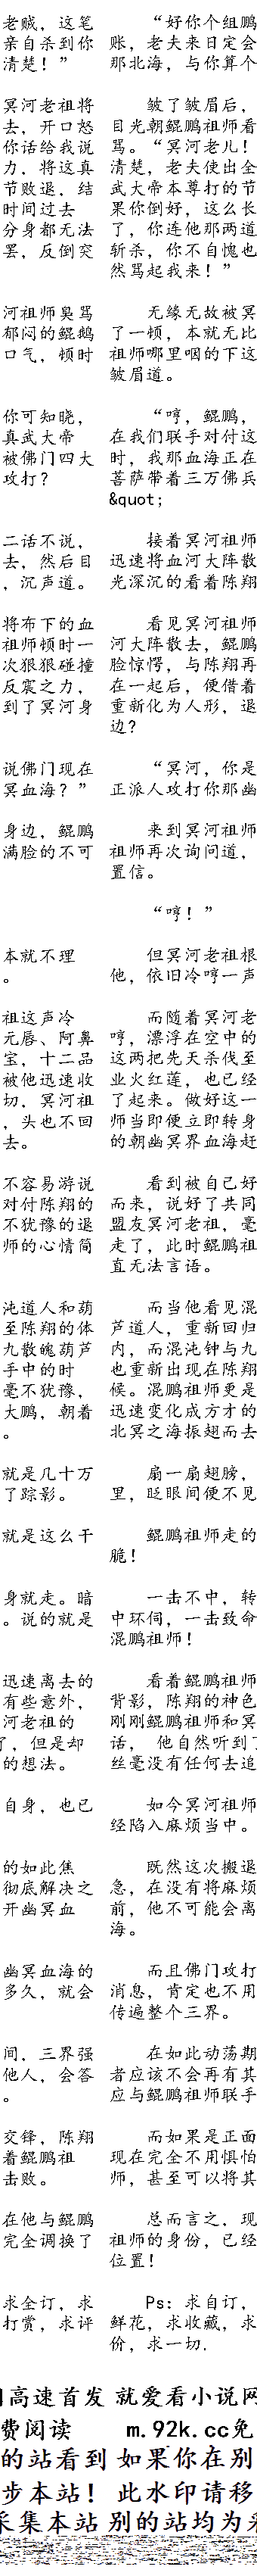 老贼，这笔 “好你个组鹏
亲自杀到你 账，老夫来日定会
清楚！” 那北海，与你算个
冥河老祖将 皱了皱眉后，
去，开口怒 目光朝鲲鹏祖师看
你话给我说 骂。“冥河老儿！
力，将这真 清楚，老夫使出全
节败退，结 武大帝本尊打的节
时间过去 果你倒好，这么长
分身都无法 了，你连他那两道
罢，反倒突 斩杀，你不自愧也
然骂起我来！”
河祖师臭骂 无缘无故被冥
郁闷的鲲鹅 了一顿，本就无比
口气，顿时 祖师哪里咽的下这
皱眉道。
你可知晓， “哼，鲲鹏，
真武大帝 在我们联手对付这
被佛门四大 时，我那血海正在
攻打？ 菩萨带着三万佛兵
&quot;
二话不说， 接着冥河祖师
去，然后目 迅速将血河大阵散
，沉声道。 光深沉的看着陈翔
将布下的血 看见冥河祖师
祖师顿时一 河大阵散去，鲲鹏
次狠狠碰撞 脸惊愕，与陈翔再
反震之力， 在一起后，便借着
到了冥河身 重新化为人形，退
边？
说佛门现在 “冥河，你是
冥血海？” 正派人攻打你那幽
身边，鲲鹏 来到冥河祖师
满脸的不可 祖师再次询问道，
置信。
“哼！”
本就不理 但冥河老祖根
。 他，依旧冷哼一声
祖这声冷 而随着冥河老
元屠、阿鼻 哼，漂浮在空中的
宝，十二品 这两把先天杀伐至
被他迅速收 业火红莲，也已经
切，冥河祖 了起来。做好这一
，头也不回 师当即便立即转身
去。 的朝幽冥界血海赶
不容易游说 看到被自己好
对付陈翔的 而来，说好了共同
不犹豫的退 盟友冥河老祖，毫
师的心情简 走了，此时鲲鹏祖
直无法言语。
沌道人和葫 而当他看见混
至陈翔的体 芦道人，重新回归
九散魄葫芦 内，而混沌钟与九
手中的时 也重新出现在陈翔
毫不犹豫， 候。混鹏祖师更是
大鹏，朝着 迅速变化成方才的
。 北冥之海振翅而去
就是几十万 扇一扇翅膀，
了踪影。 里，眨眼间便不见
就是这么干 鲲鹏祖师走的
脆！
身就走。暗 一击不中，转
。说的就是 中环伺，一击致命
混鹏祖师！
迅速离去的 看着鲲鹏祖师
有些意外， 背影，陈翔的神色
河老祖的 刚刚鲲鹏祖师和冥
了，但是却 话， 他自然听到了
的想法。 丝毫没有任何去追
自身，也已 如今冥河祖师
经陷入麻烦当中。
的如此焦 既然这次搬退
彻底解决之 急，在没有将麻烦
开幽冥血 前，他不可能会离
海。
幽冥血海的 而且佛门攻打
多久，就会 消息，肯定也不用
传遍整个三界。
间，三界强 在如此动荡期
他人，会答 者应该不会再有其
。 应与鲲鹏祖师联手
交锋，陈翔 而如果是正面
着鲲鹏祖 现在完全不用惧怕
击败。 师，甚至可以将其
在他与鲲鹏 总而言之．现
完全调换了 祖师的身份，已经
位置！
求全订，求 Ps：求自订，
打赏，求评 鲜花，求收藏，求
价，求一切．
高速首发 就爱看小说网
费阅读 m.92k.cc免
的站看到 如果你在别
步本站！ 此水印请移
采集本站 别的站均为